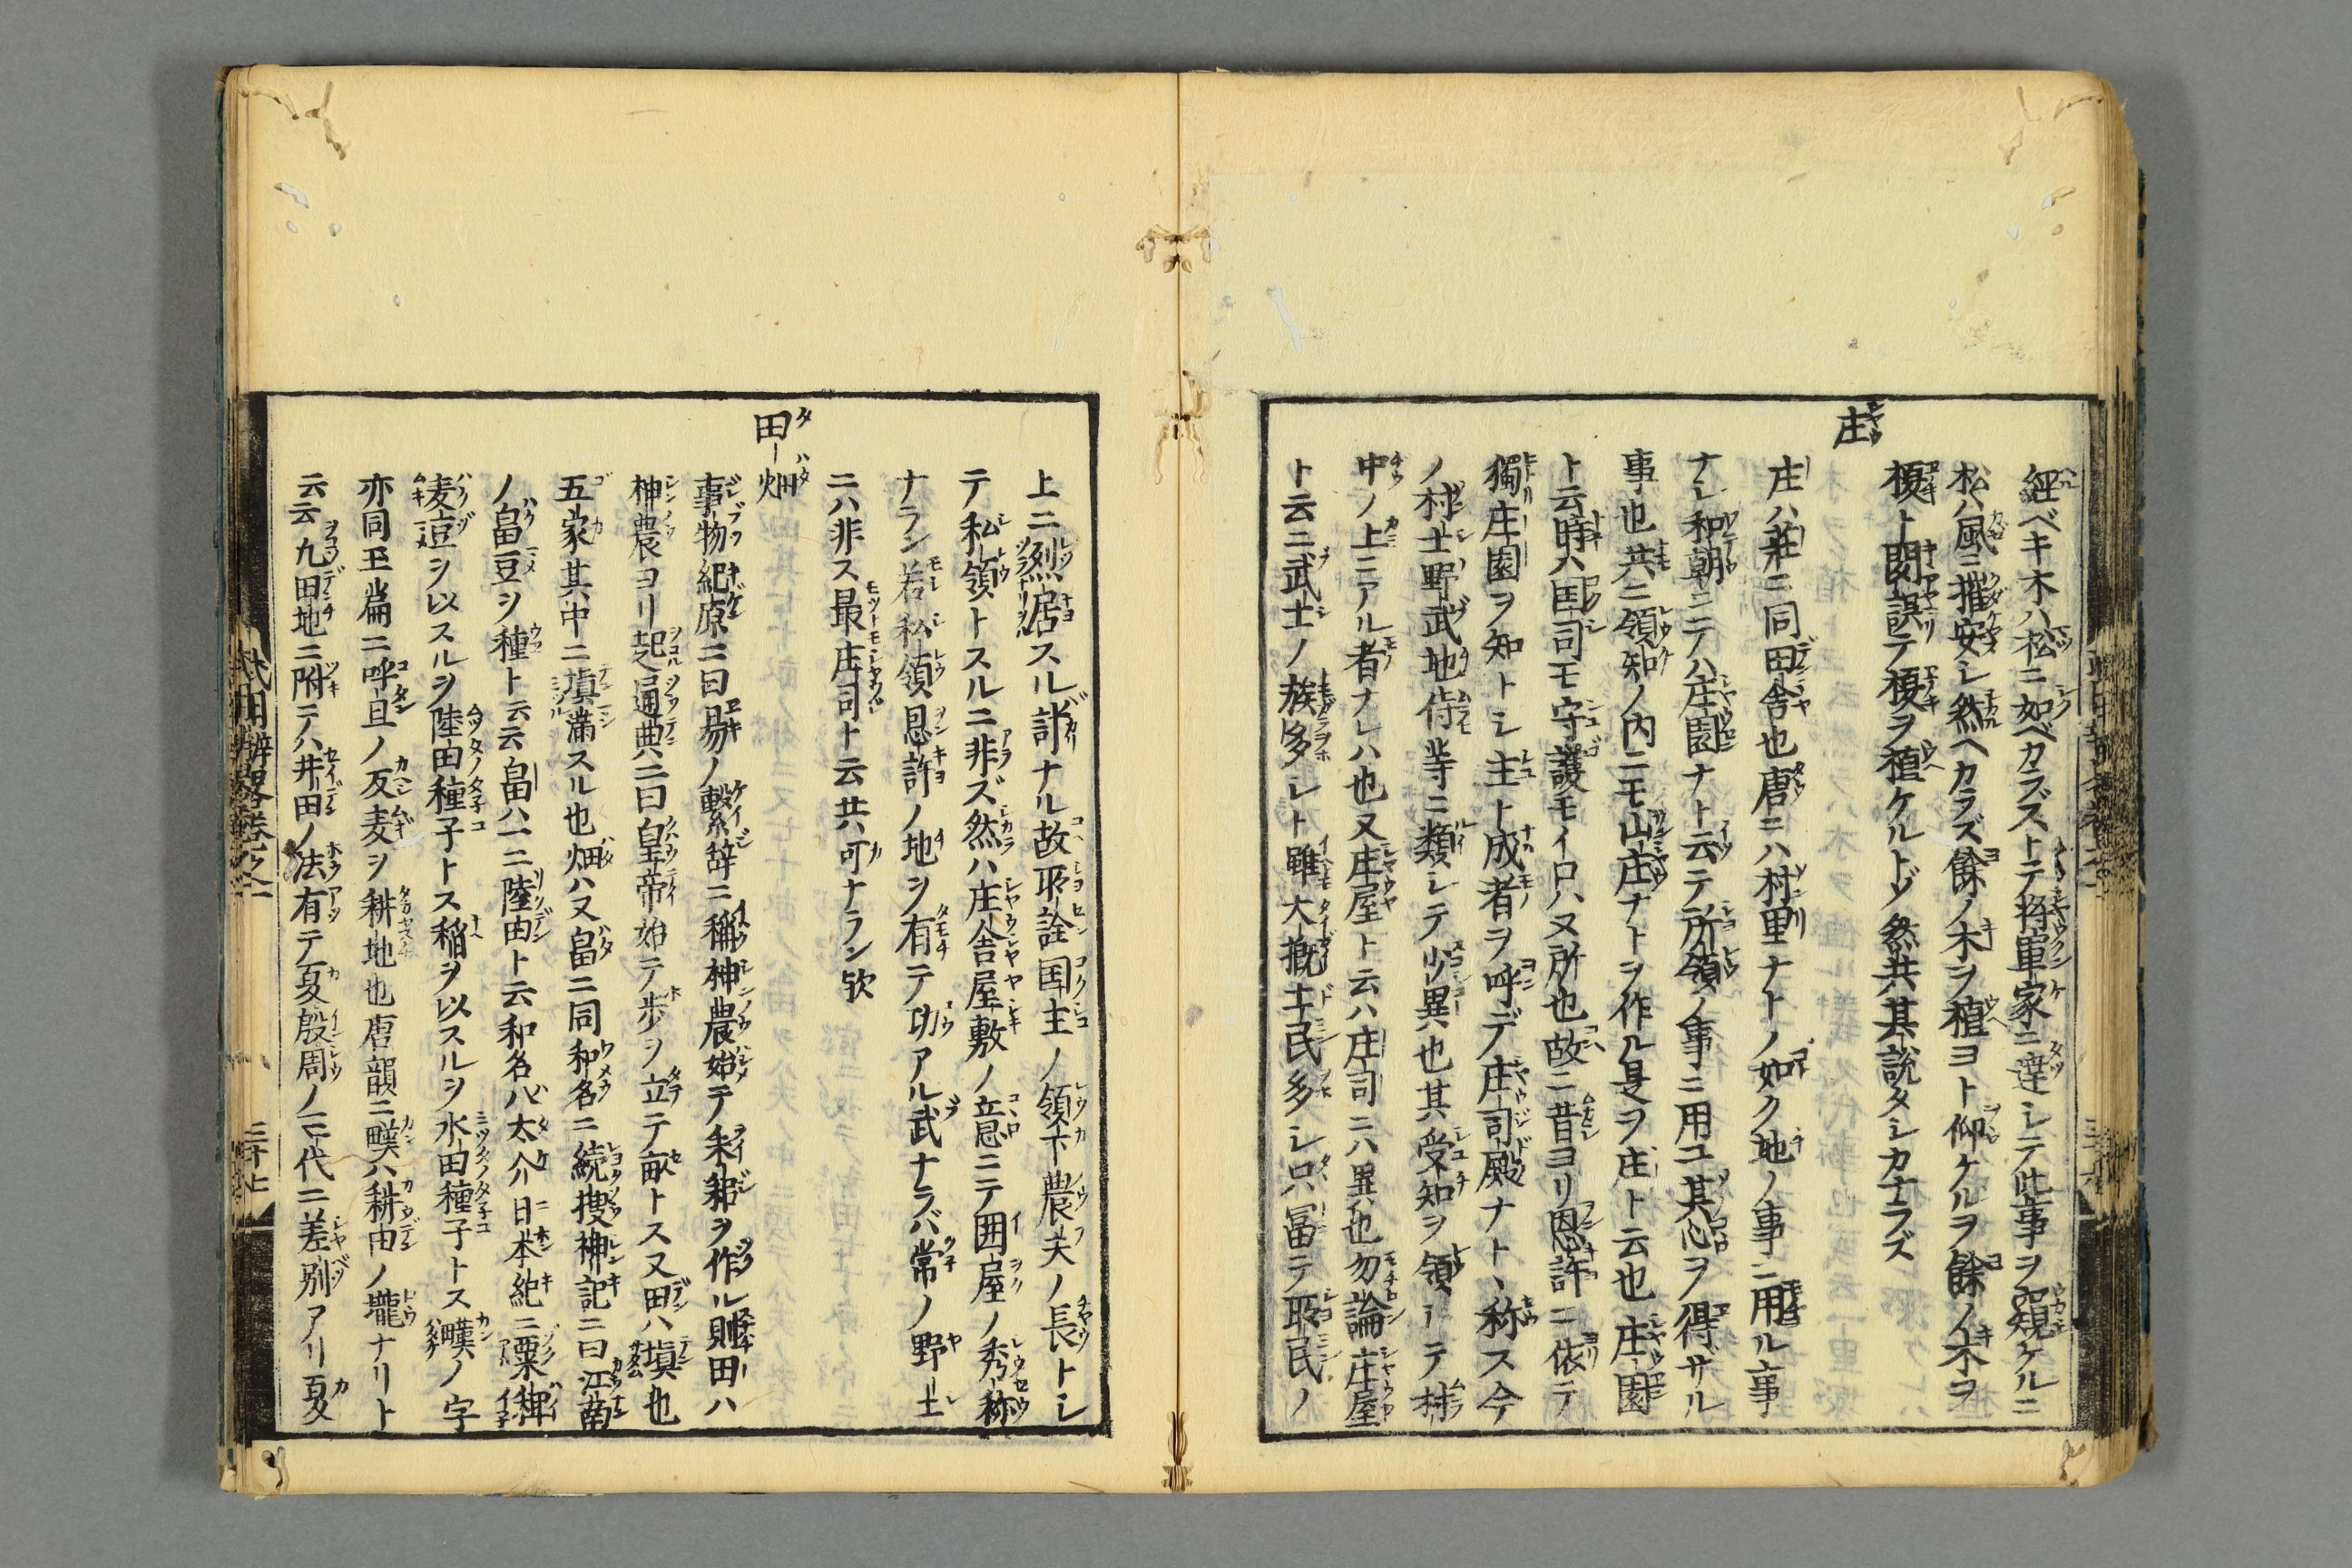 経ベキ木ハ松ニ如ベカラズトテ将軍家ニ達シテ此事ヲ窺ケルニ
松ハ風ニ摧安シ然ヘカラズ餘ノ木ヲ植ヨト仰ケルヲ餘ノ木ヲ
榎ト聞誤テ榎ヲ植ケルトゾ然共其説タシカナラズ
庄
庄ハ荘ニ同田舎也唐ニハ村里ナトノ如ク地ノ事ニ用ル事
ナシ和朝ニテハ庄園ナト云テ所領ノ事ニ用ユ其心ヲ得サル
事也共ニ領知ノ内ニモ山庄ナトヲ作ル是ヲ庄ト云也庄園
ト云時ハ国司モ守護モイロハヌ所也故ニ昔ヨリ恩許ニ依テ
獨庄園ヲ知トシ主ト成者ヲ呼デ庄司殿ナトヽ称ス今
ノ村士野武地侍等ニ類シテ少異也其受知ヲ領シテ村
中ノ上ニアル者ナレハ也又庄屋ト云ハ庄司ニハ異也勿論庄屋
ト云ニ武士ノ族多シト雖大概土民多シ只冨テ所民ノ
上ニ烈居スル計ナル故所詮国主ノ領下農夫ノ長トシ
テ私領トスルニ非ズ然ハ庄舎屋敷ノ意ニテ囲屋ノ秀称
ナラン若私領恩許ノ地ヲ有テ功アル武ナラバ常ノ野士
ニハ非ス最庄司ト云共可ナラン欤
田畑
事物紀原ニ曰易ノ繋辞ニ稱神農始テ耒耜ヲ作ル則田ハ
神農ヨリ起通典ニ曰皇帝始テ歩ヲ立テ畝トス又田ハ填也
五家其中ニ填満スル也畑ハ又畠ニ同和名ニ続捜神記ニ曰江南
ノ畠豆ヲ種ト云云畠ハ一ニ陸田ト云和名ハ太介日本紀ニ粟稗
麦豆ヲ以スルヲ陸田種子トス稲ヲ以スルヲ水田種子トス暵ノ字
亦同玉篇ニ呼旦ノ反麦ヲ耕地也唐韻ニ暵ハ耕田ノ壠ナリト
云云九田地ニ附テハ井田ノ法有テ夏殷周ノ三代ニ差別アリ夏
三十七